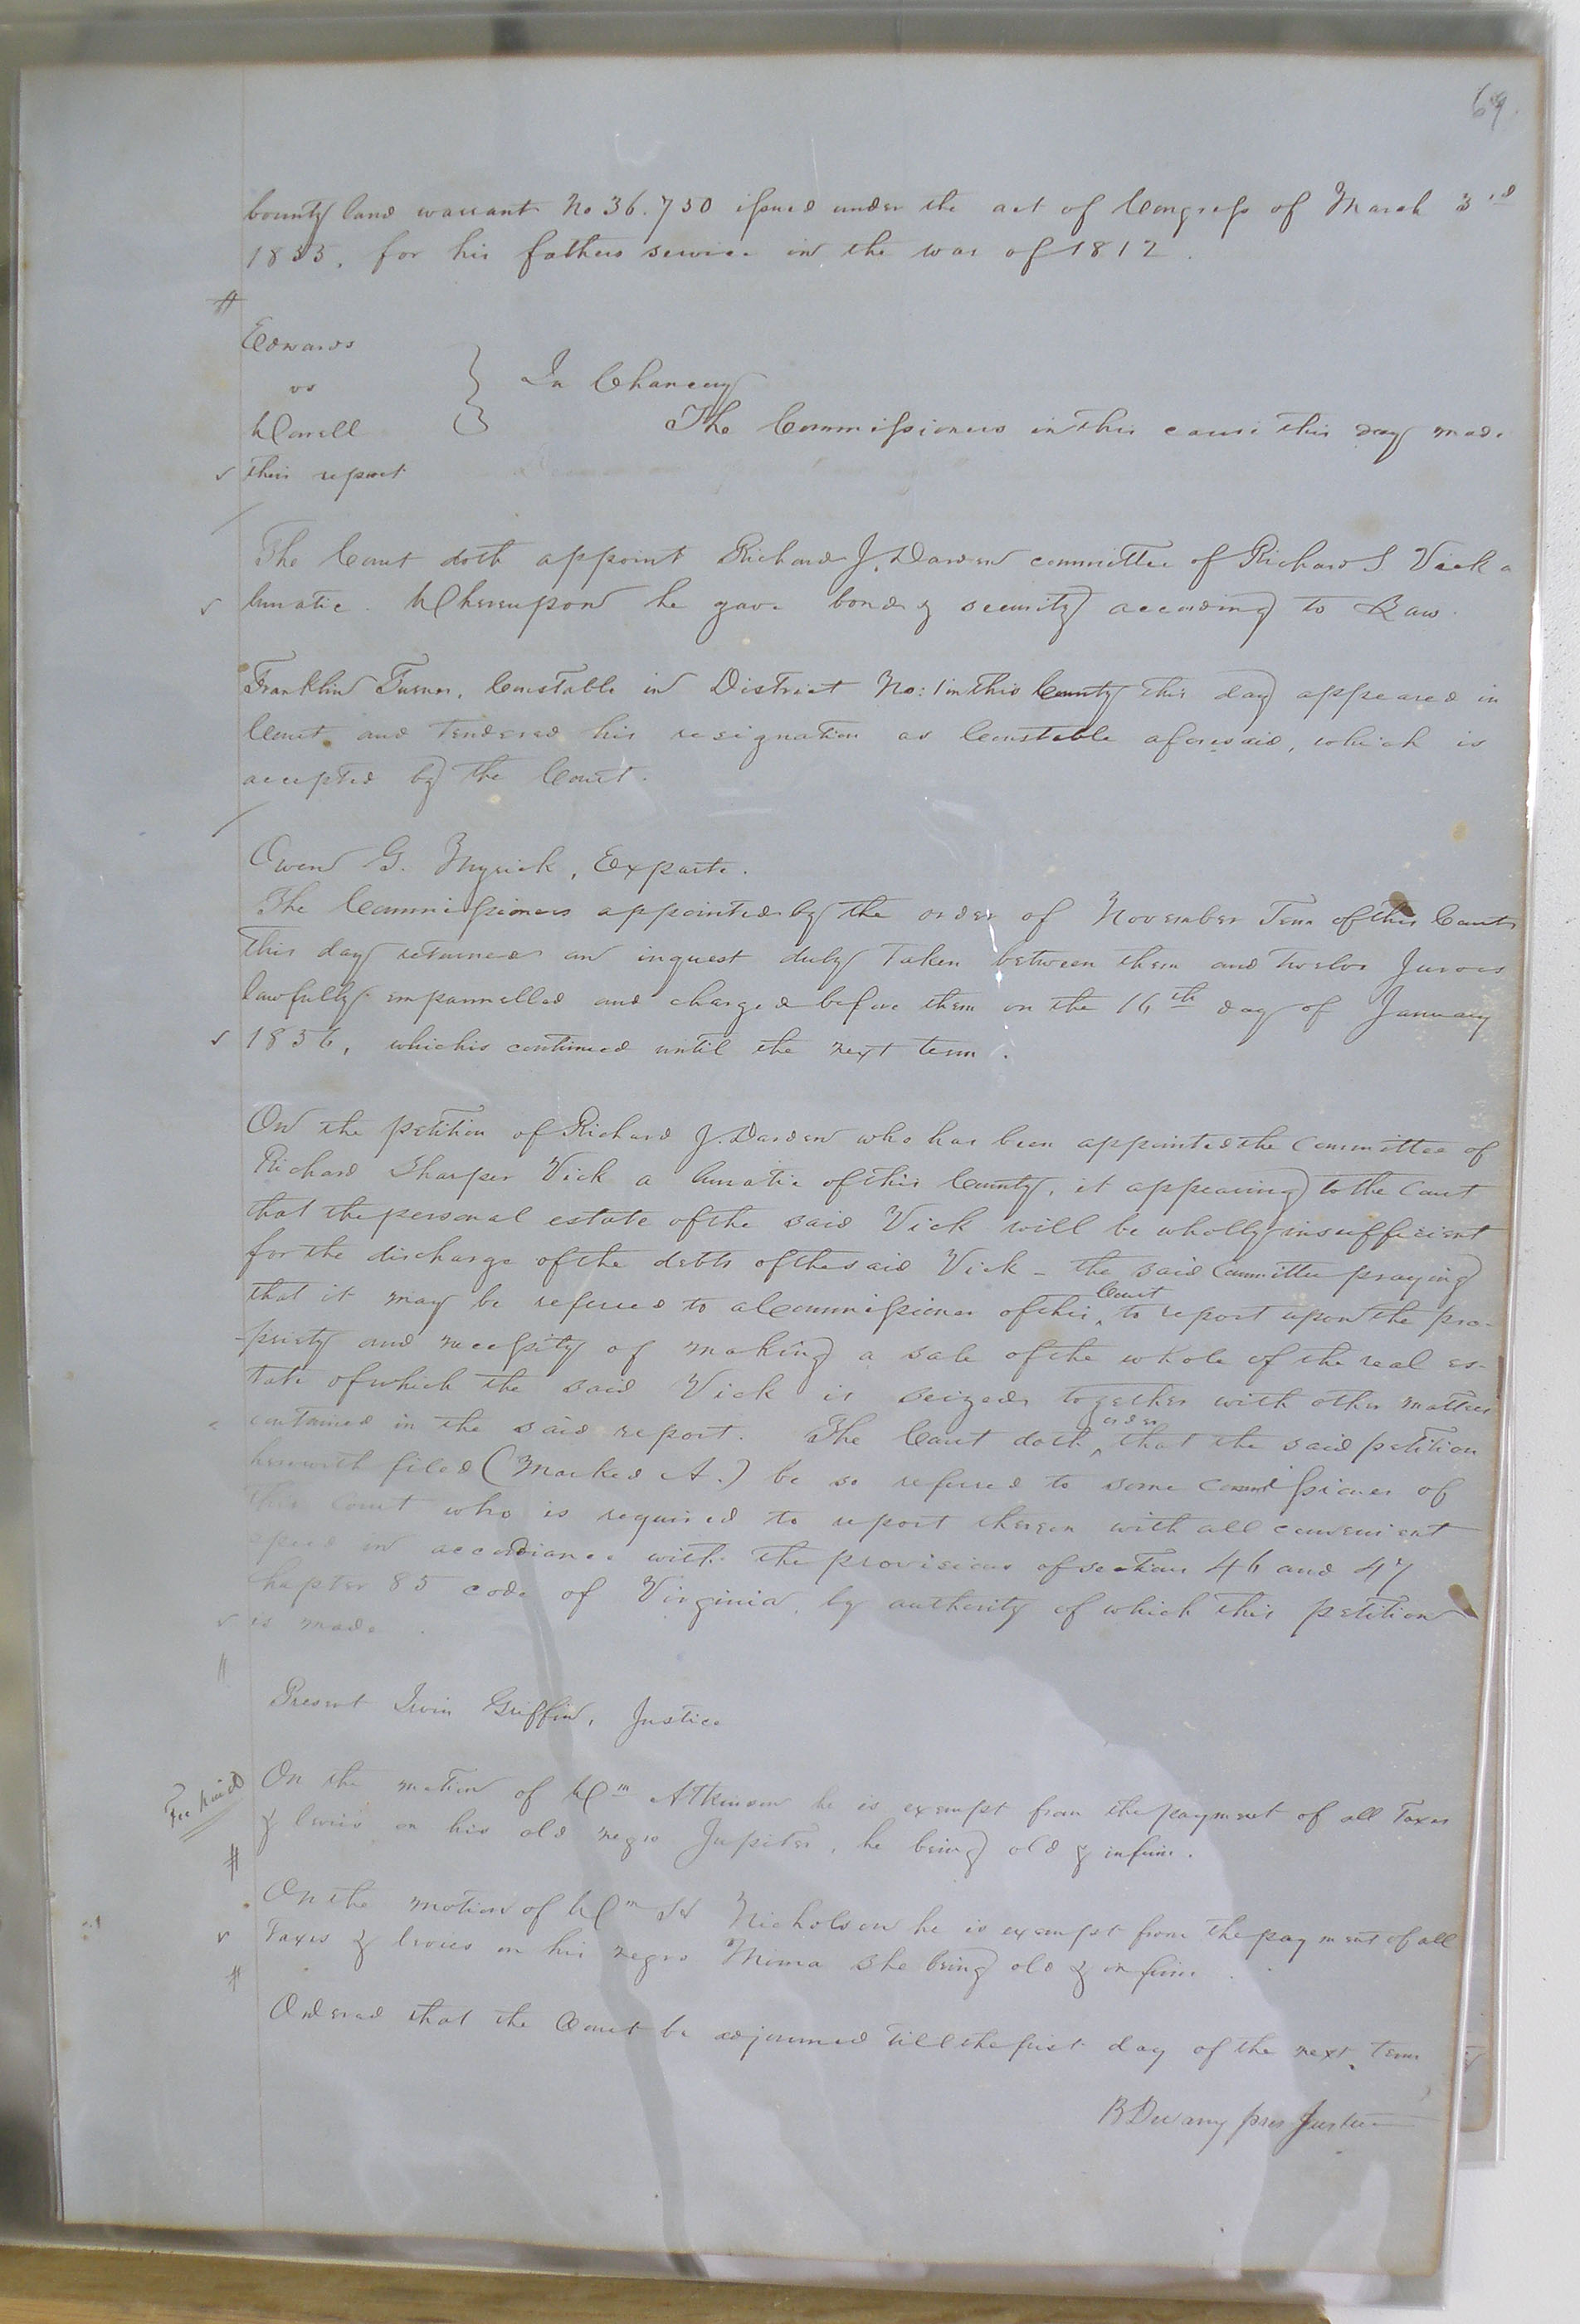 69.
bounty land warrant No 36.750 issued under the act of Congress of March 3rd
1855, for his fathers service in the war of 1812.
Edwards
vs
In Chancery
The Commissioners in this cause this day made
their report
The Court doth appoint Richard J. Darden committee of Richard S Vick a
lunatic. Whereupon he gave bond & security according to Law.
Franklin Turner, Constable in District No: 1 in this County this day appeared in
Court and tendered his resignation as Constable aforesaid, which is
accepted by the Court.
Owen G. Myrick, Exparte.
The Commissioners appointed by the order of November Term of this Court
this day returned an inquest duly taken between them and twelve Jurors
lawfully empannelled and charged before them on the 16th day of January
1856, which is continued until the next term.
On the petition of Richard J. Darden who has been appointed the Committee of
Richard Sharper Vick a lunatic of this County, it appearing to the Court
that the personal estate of the said Vick will be wholly insufficient
for the discharge of the debts of the said Vick - the said Committee praying
that it may be referred to a Commissioner of this Court to report upon the pro-
-priety and necessity of making a sale of the whole of the real es-
tate of which the said Vick is seized together with other matters
contained in the said report. The Court doth order that the said petition
herewith filed (Marked A.) be so referred to some Commissioner of
this Court who is required to report thereon with all convenient
speed in accordiance with the provisions of section 46 and 47
chapter 85 code of Virginia, by authority of which this petition
is made.
Present Irvin Griffin, Justice
Fee paid
On the motion of Wm Atkinson he is exempt from the payment of all Taxes
& levies on his old negro Jupiter, he being old & infirm.
On the motion of Wm Nicholson he is exempt from the payment of all
Taxes & levies on his negro Mima she being old & infirm.
Ordered that the Court be adjourned till the first day of the next term
pres Justice